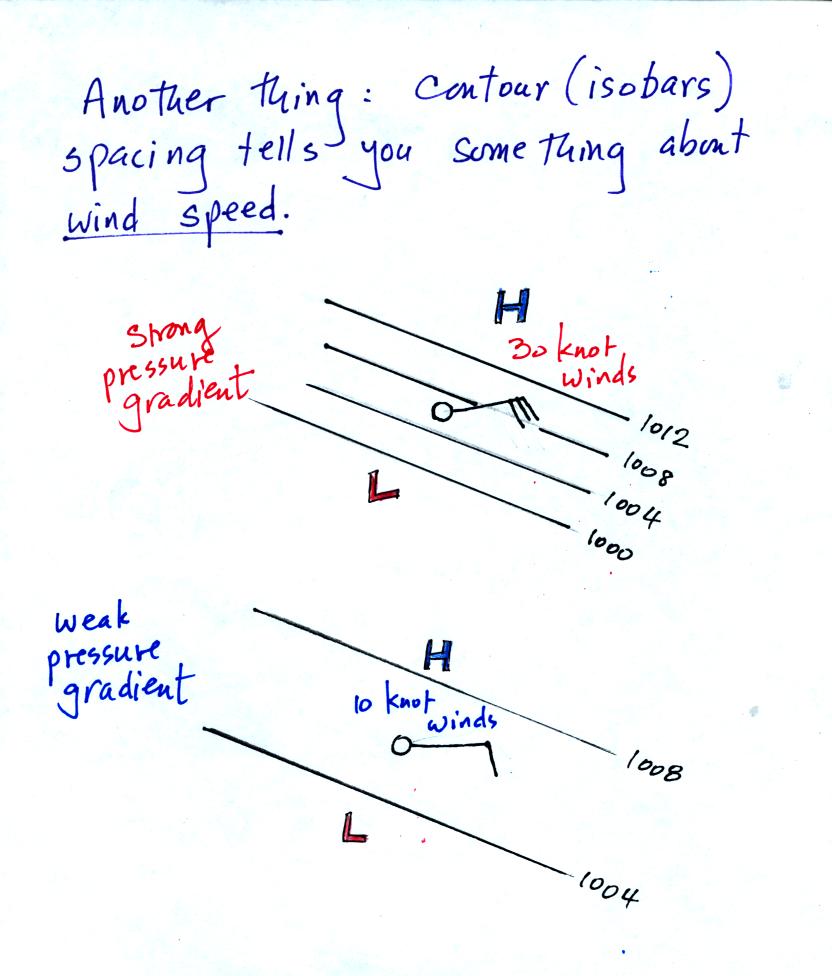 Another thing: contour (isobars)
spacing tells you something about
wind speed.
H
strong
pressure
gradient
30 knot
winds
1012
1008
1004
1000
L
weak
pressure
gradient
H
10 knot
winds
1008
L
1004